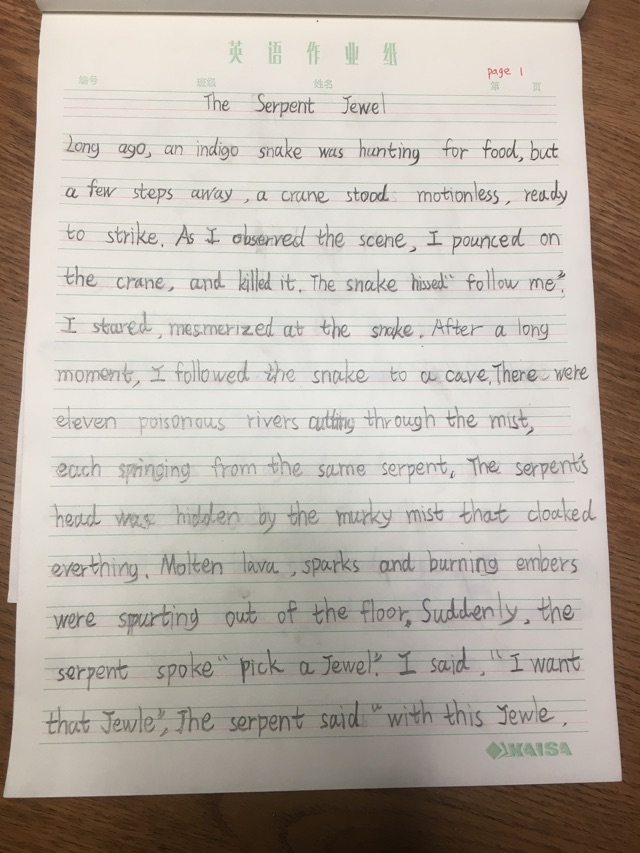 英语作业纸
page 1
编号 班级 姓名 第 页
The Serpent Jewel
Long ago, an indigo snake was hunting for food, but
a few steps away, a crane stood motionless, ready
to strike. As I observed the scene, I pounced on
the crane, and killed it. The snake hissed "follow me".
I stared, mesmerized at the snake. After a long
moment, I followed the snake to a cave. There were
eleven poisonous rivers cutting through the mist,
each springing from the same serpent. The serpent's
head was hidden by the murky mist that cloaked
everthing. Molten lava, sparks and burning embers
were spurting out of the floor. Suddenly, the
serpent spoke "pick a Jewel". I said, "I want
that Jewle", The serpent said "with this Jewle,
KAISA